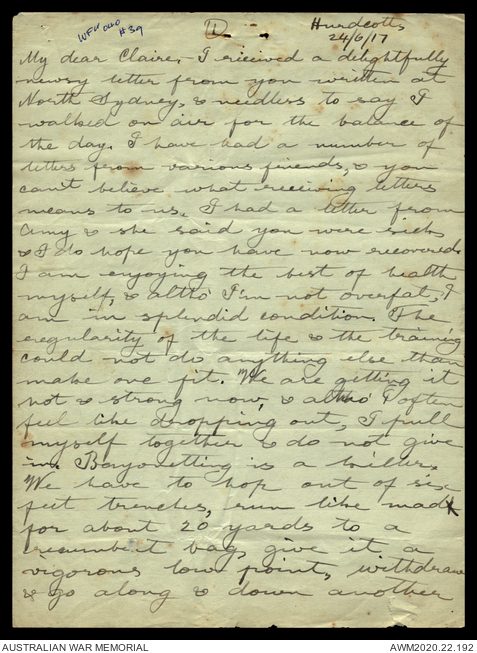 WFW 040
#39
①
Hurdcotts
24/6/17
My dear Claire, - I received a delightfully
newsy letter from you written at
North Sydney, & needless to say I
walked on air for the balance of
the day. I have had a number of
letters from various friends, & you
can't believe what receiving letters
means to us. I had a letter from
Amy & she said you were sick
& I do hope you have now recovered.
I am enjoying the best of health
myself, & altho' I'm not overfat, I
am in splendid condition. The
regularity of the life & the training
could not do anything else than
make one fit. We are getting it
hot & strong now, & altho' I often
feel like dropping out, I pull
myself together & do not give
in. Bayonetting is a killer.
We have to hop out of six
feet trenches, run like mad
for about 20 yards to a
recumbent bag, give it a
vigorous low point, withdraw
& go along & down another
AUSTRALIAN WAR MEMORIAL
AWM2020.22.192